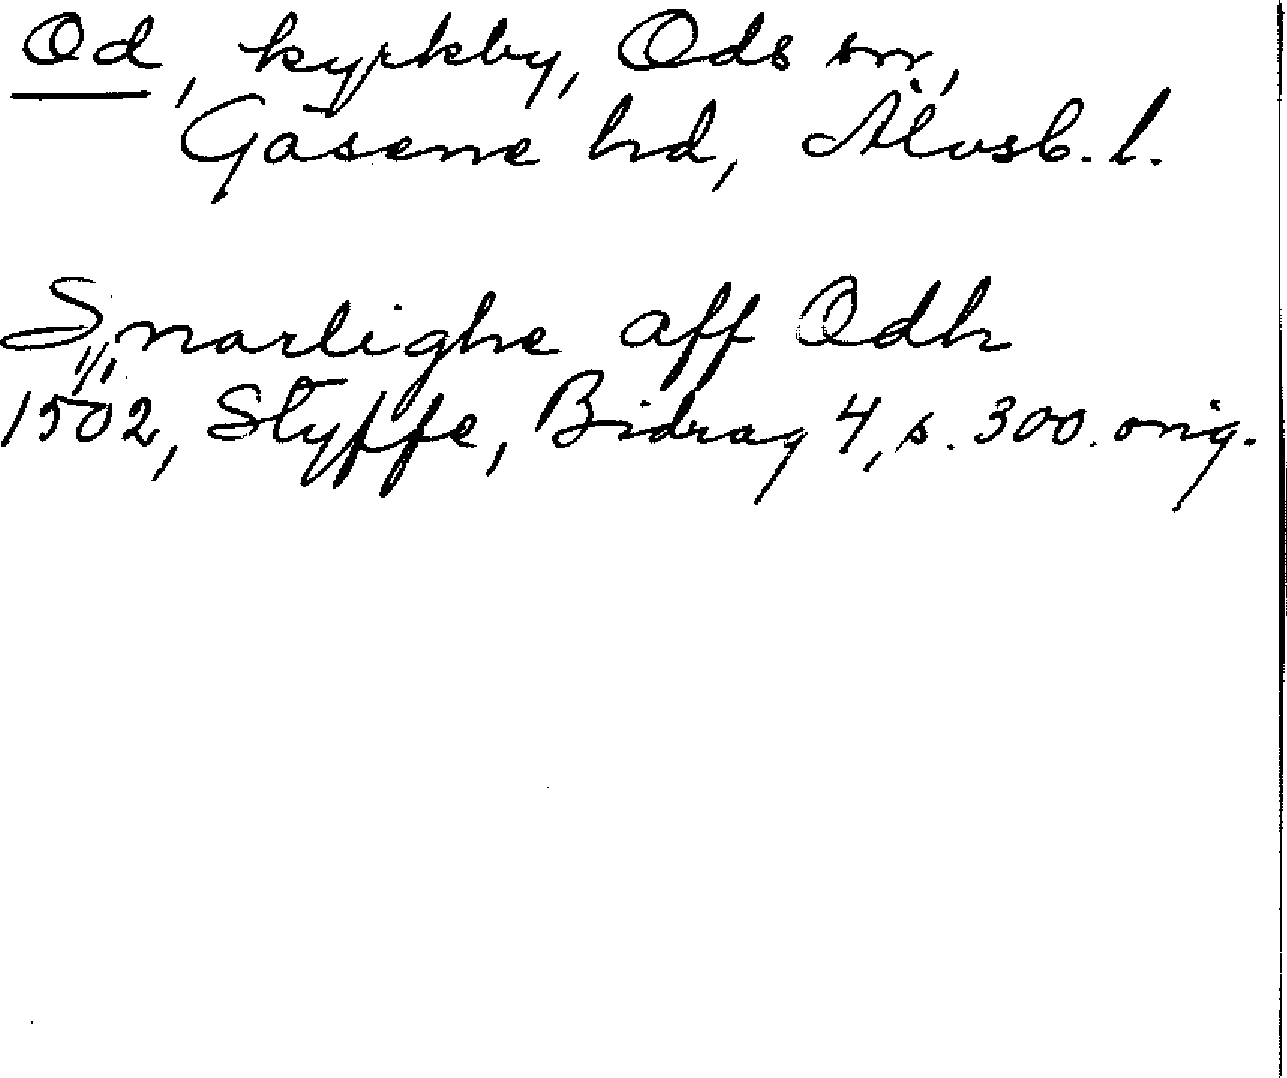 Od, kyrkby, Ods sn,
Gäsene hd, Älvsb. l.
Snarlighe aff Odh
1502, Styffe, Bidrag 4, s. 300. orig.